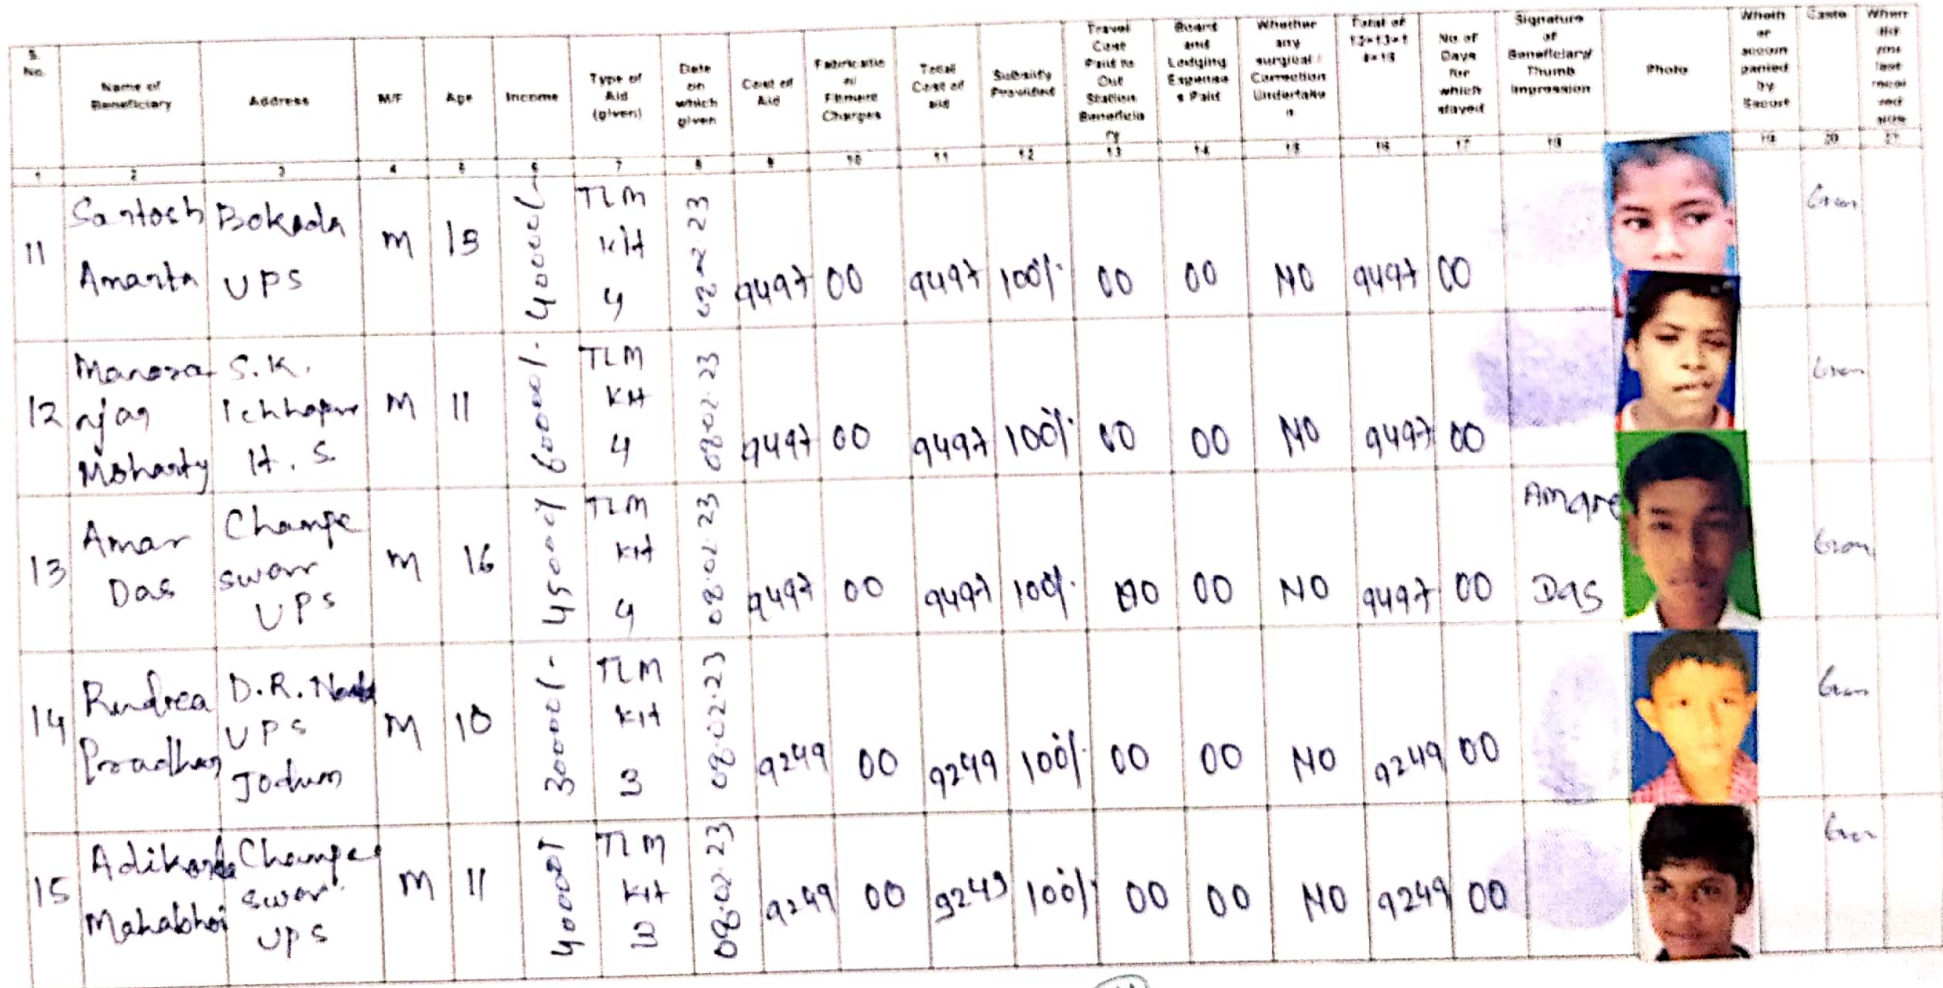 S. No.
Name of Beneficiary
Address
M/F
Age
Income
Type of Aid (given)
Date on which given
Cost of Aid
Fabrication/ Fitment Charges
Total Cost of aid
Subsidy Provided
Travel Cost Paid to Out Station Beneficiary
Board and Lodging Expenses Paid
Whether any surgical / Correction Undertaken
Total of 12+13+1
No. of Days for which stayed
Signature of Beneficiary/ Thumb Impression
Photo
Whether accompanied by Escort
Caste
When did you last
1 2 3 4 5 6 7 8 9 10 11 12 13 14 15 16 17 18 19 20 21
11 Santosh Ananta Bokada UPS M 13 40000/- TLM Kit 4 9497 00 9497 100% 00 00 NO 9497 00 Gen
12 Manoranjan Mohanty S.K. Ichhapur H.S M 11 60000/- TLM Kit 4 08.02.23 9497 00 9497 100% 00 00 NO 9497 00 Gen
13 Amar Das Champe swar UPS M 16 45000/ TLM Kit 4 08.02.23 9497 00 9497 100% 00 NO 9497 00 Das Gen
14 Rudra Pradhan D.R. UPS Jodum M 10 30000/- TLM Kit 3 08.02.23 9249 00 9249 100% 00 00 NO 9249 00 Gen
15 Mahabhoi Champe swar UPS M 11 40000/ TLM Kit 3 08.02.23 9249 00 9249 100% 00 00 NO 9249 00 Gen